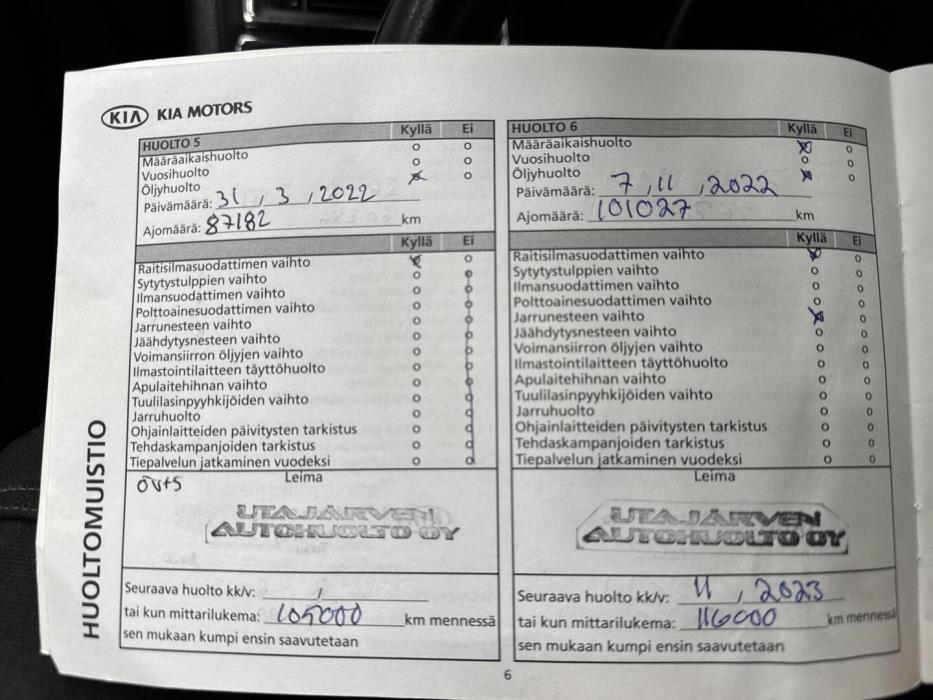 KIA KIA MOTORS
HUOLTO 5 Kyllä Ei
Määräaikaishuolto o o
Vuosihuolto o o
Öljyhuolto x o
Päivämäärä: 31 , 3 , 2022
Ajomäärä: 87182 km
Kyllä Ei
Raitisilmasuodattimen vaihto x o
Sytytystulppien vaihto o o
Ilmansuodattimen vaihto o o
Polttoainesuodattimen vaihto o o
Jarrunesteen vaihto o o
Jäähdytysnesteen vaihto o o
Voimansiirron öljyjen vaihto o o
Ilmastointilaitteen täyttöhuolto o o
Apulaitehihnan vaihto o o
Tuulilasinpyyhkijöiden vaihto o o
Jarruhuolto o o
Ohjainlaitteiden päivitysten tarkistus o o
Tehdaskampanjoiden tarkistus o o
Tiepalvelun jatkaminen vuodeksi o o
Leima
UTAJÄRVEN
AUTOHUOLTO OY
Seuraava huolto kk/v: ,
tai kun mittarilukema: 105000 km mennessä
sen mukaan kumpi ensin saavutetaan
HUOLTO 6 Kyllä Ei
Määräaikaishuolto x o
Vuosihuolto o o
Öljyhuolto x o
Päivämäärä: 7 , 11 , 2022
Ajomäärä: 101027 km
Kyllä Ei
Raitisilmasuodattimen vaihto x o
Sytytystulppien vaihto o o
Ilmansuodattimen vaihto o o
Polttoainesuodattimen vaihto o o
Jarrunesteen vaihto x o
Jäähdytysnesteen vaihto o o
Voimansiirron öljyjen vaihto o o
Ilmastointilaitteen täyttöhuolto o o
Apulaitehihnan vaihto o o
Tuulilasinpyyhkijöiden vaihto o o
Jarruhuolto o o
Ohjainlaitteiden päivitysten tarkistus o o
Tehdaskampanjoiden tarkistus o o
Tiepalvelun jatkaminen vuodeksi o o
Leima
UTAJÄRVEN
AUTOHUOLTO OY
Seuraava huolto kk/v: 11 , 2023
tai kun mittarilukema: 116000 km mennessä
sen mukaan kumpi ensin saavutetaan
HUOLTOMUISTIO
6